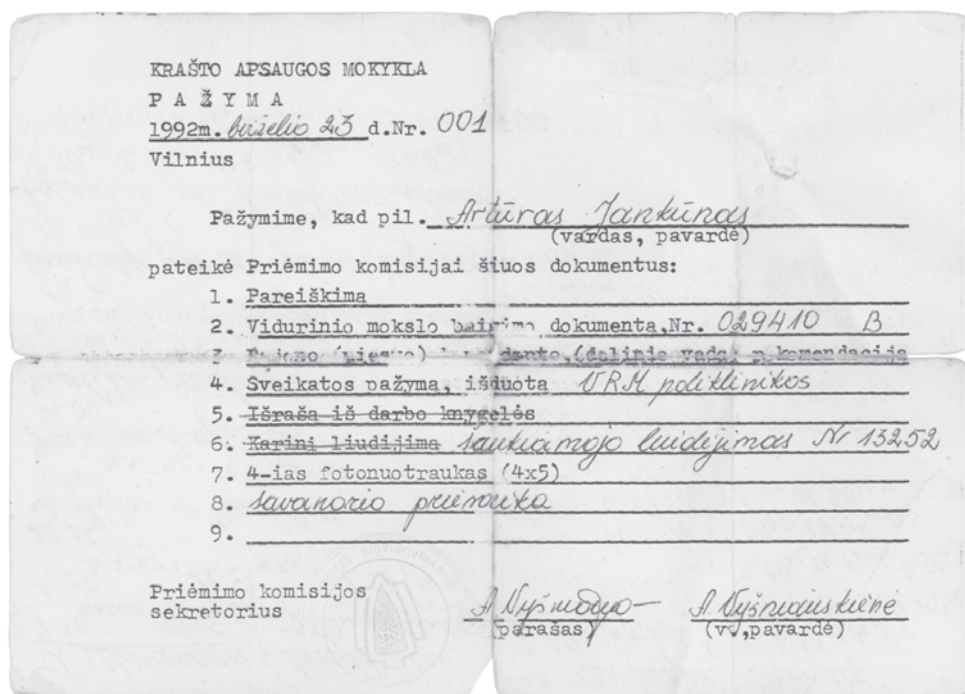 KRAŠTO APSAUGOS MOKYKLA
PAŽYMA
1992m. birželio 23 d.Nr. 001
Vilnius
Pažymime, kad pil. Artūras Jankūnas
(vardas, pavardė)
pateikė Priėmimo komisijai šiuos dokumentus:
1. Pareiškima
2. Vidurinio mokslo dokumenta,Nr. 029410 B
3. darbo (dalinio rekomendacija
4. Sveikatos pažyma, išduota VRM poliklinikos
5. Išraša iš darbo knygelės
6. Karini liudijima šaukiamojo liudijimas Nr 13252
7. 4-ias fotonuotraukas (4x5)
8. savanorio
9.
Priėmimo komisijos
sekretorius
(parašas) (vv,pavardė)